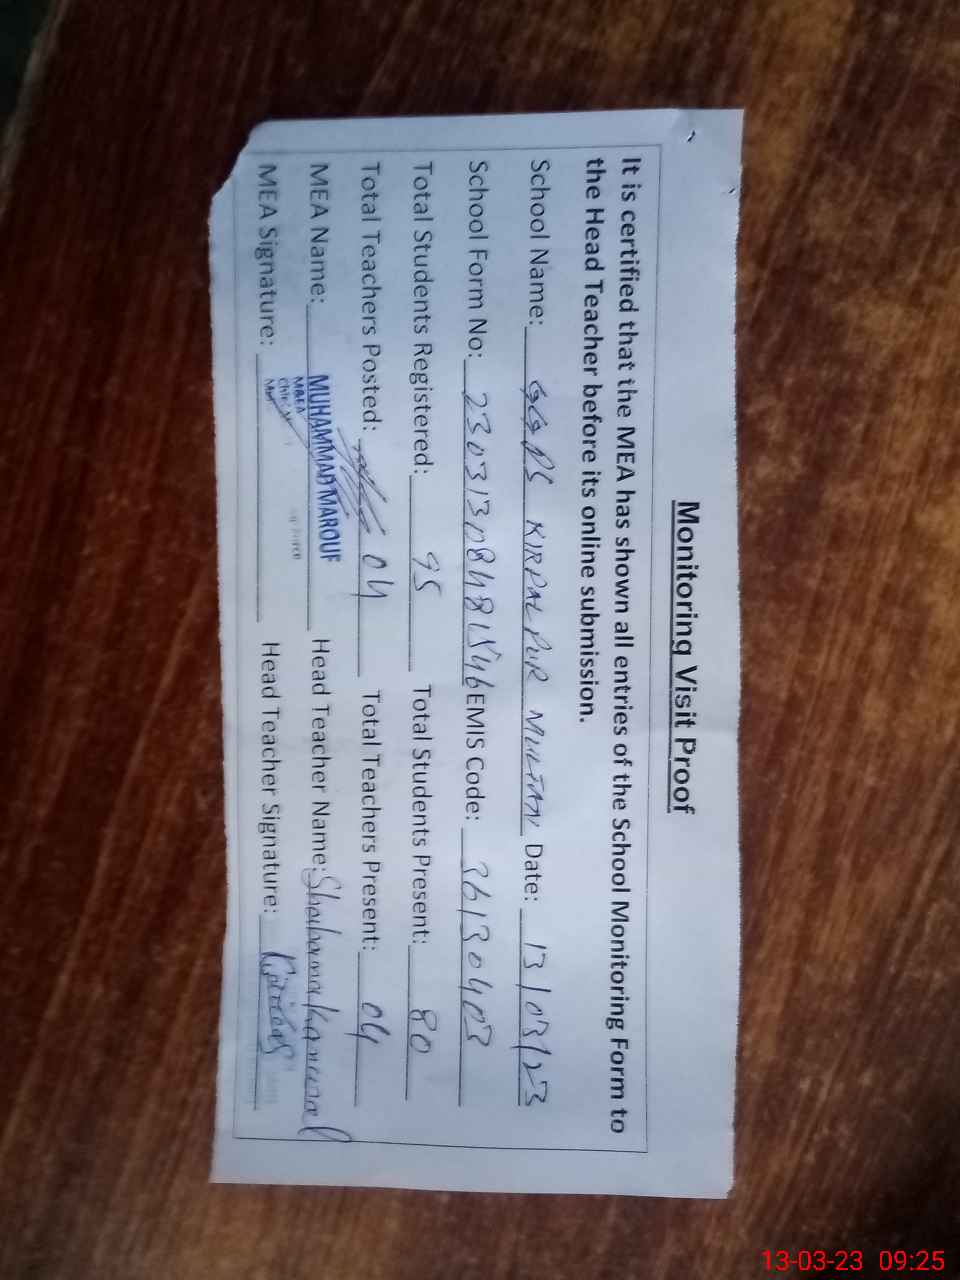 Monitoring Visit Proof
It is certified that the MEA has shown all entries of the School Monitoring Form to
the Head Teacher before its online submission.
School Name: GGPS KIRPAL PUR MULTAN Date: 13/03/23
School Form No: 23031308481546 EMIS Code: 36130403
Total Students Registered: 95 Total Students Present: 80
Total Teachers Posted: 04 Total Teachers Present: 04
MEA Name: MUHAMMAD MAROUF Head Teacher Name: Shabana kanwal
MEA Signature: Head Teacher Signature:
13-03-23 09:25